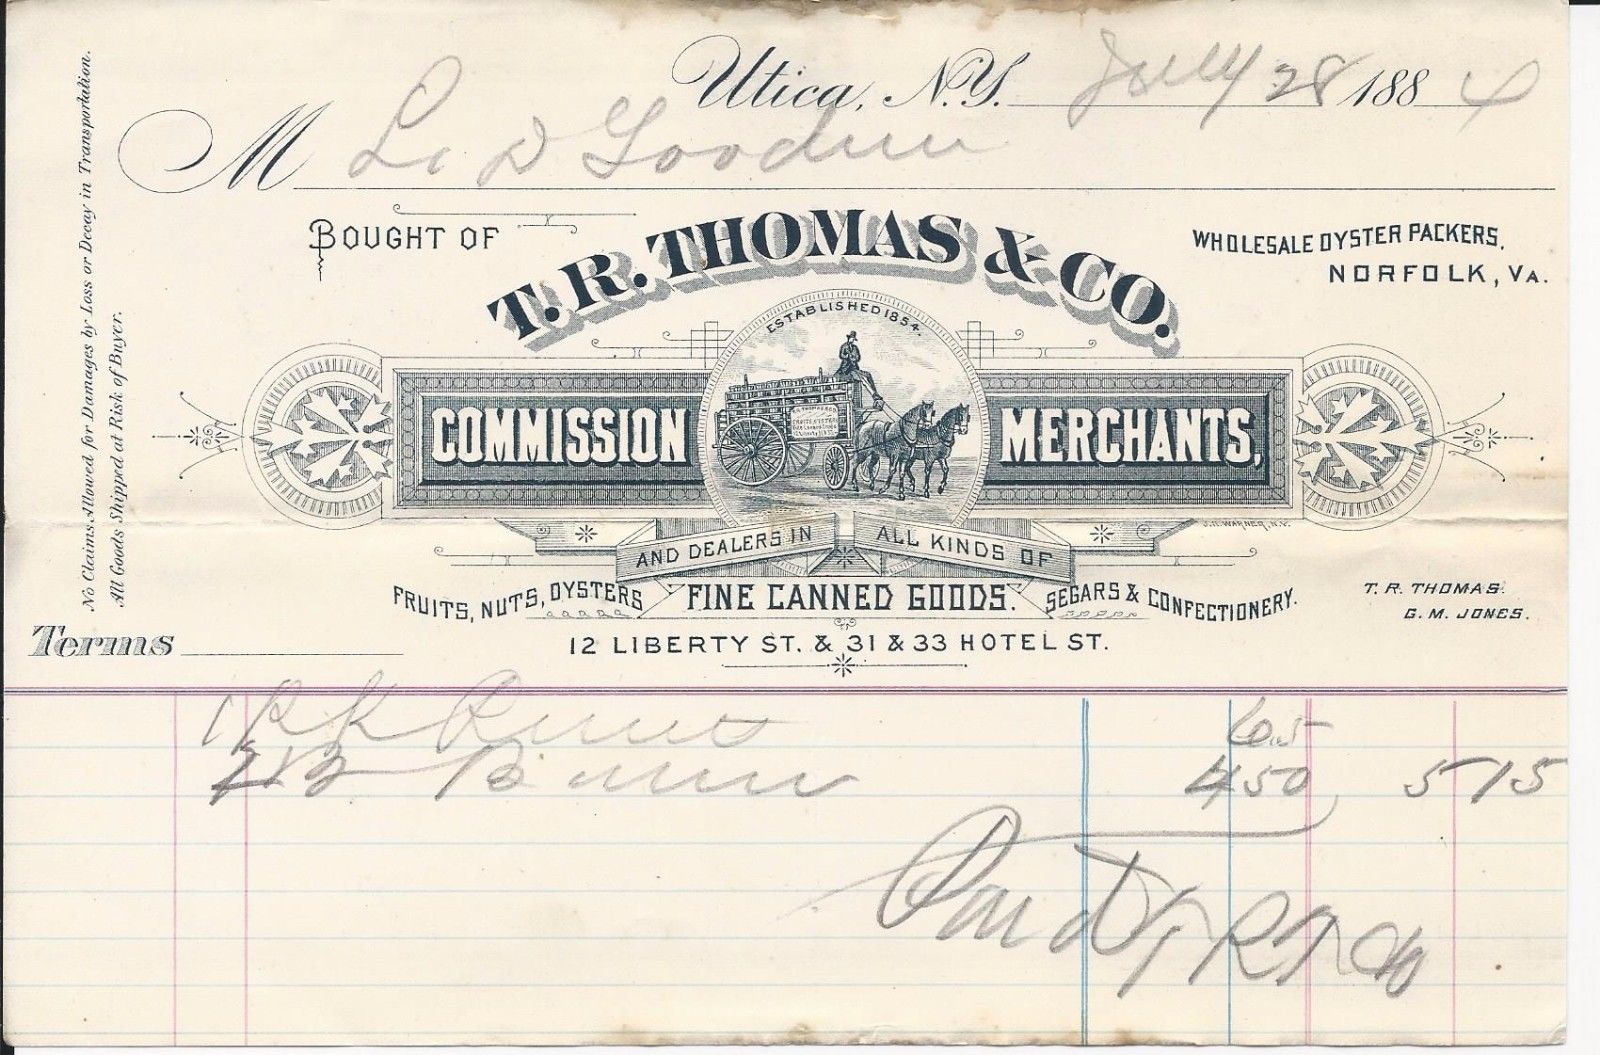 Utica, N.Y. July 28 1884
M L. D Goodwin
BOUGHT OF
T. R. THOMAS & CO.
WHOLESALE OYSTER PACKERS,
NORFOLK, VA.
ESTABLISHED 1854.
COMMISSION MERCHANTS,
J.H. WARNER, N.Y.
AND DEALERS IN ALL KINDS OF
FRUITS, NUTS, OYSTERS FINE CANNED GOODS. SEGARS & CONFECTIONERY.
T. R. THOMAS.
G. M. JONES.
12 LIBERTY ST. & 31 & 33 HOTEL ST.
No Claims Allowed for Damages by Loss or Decay in Transportation.
All Goods Shipped at Risk of Buyer.
Terms
1 65
450 515
Paid T R T & Co